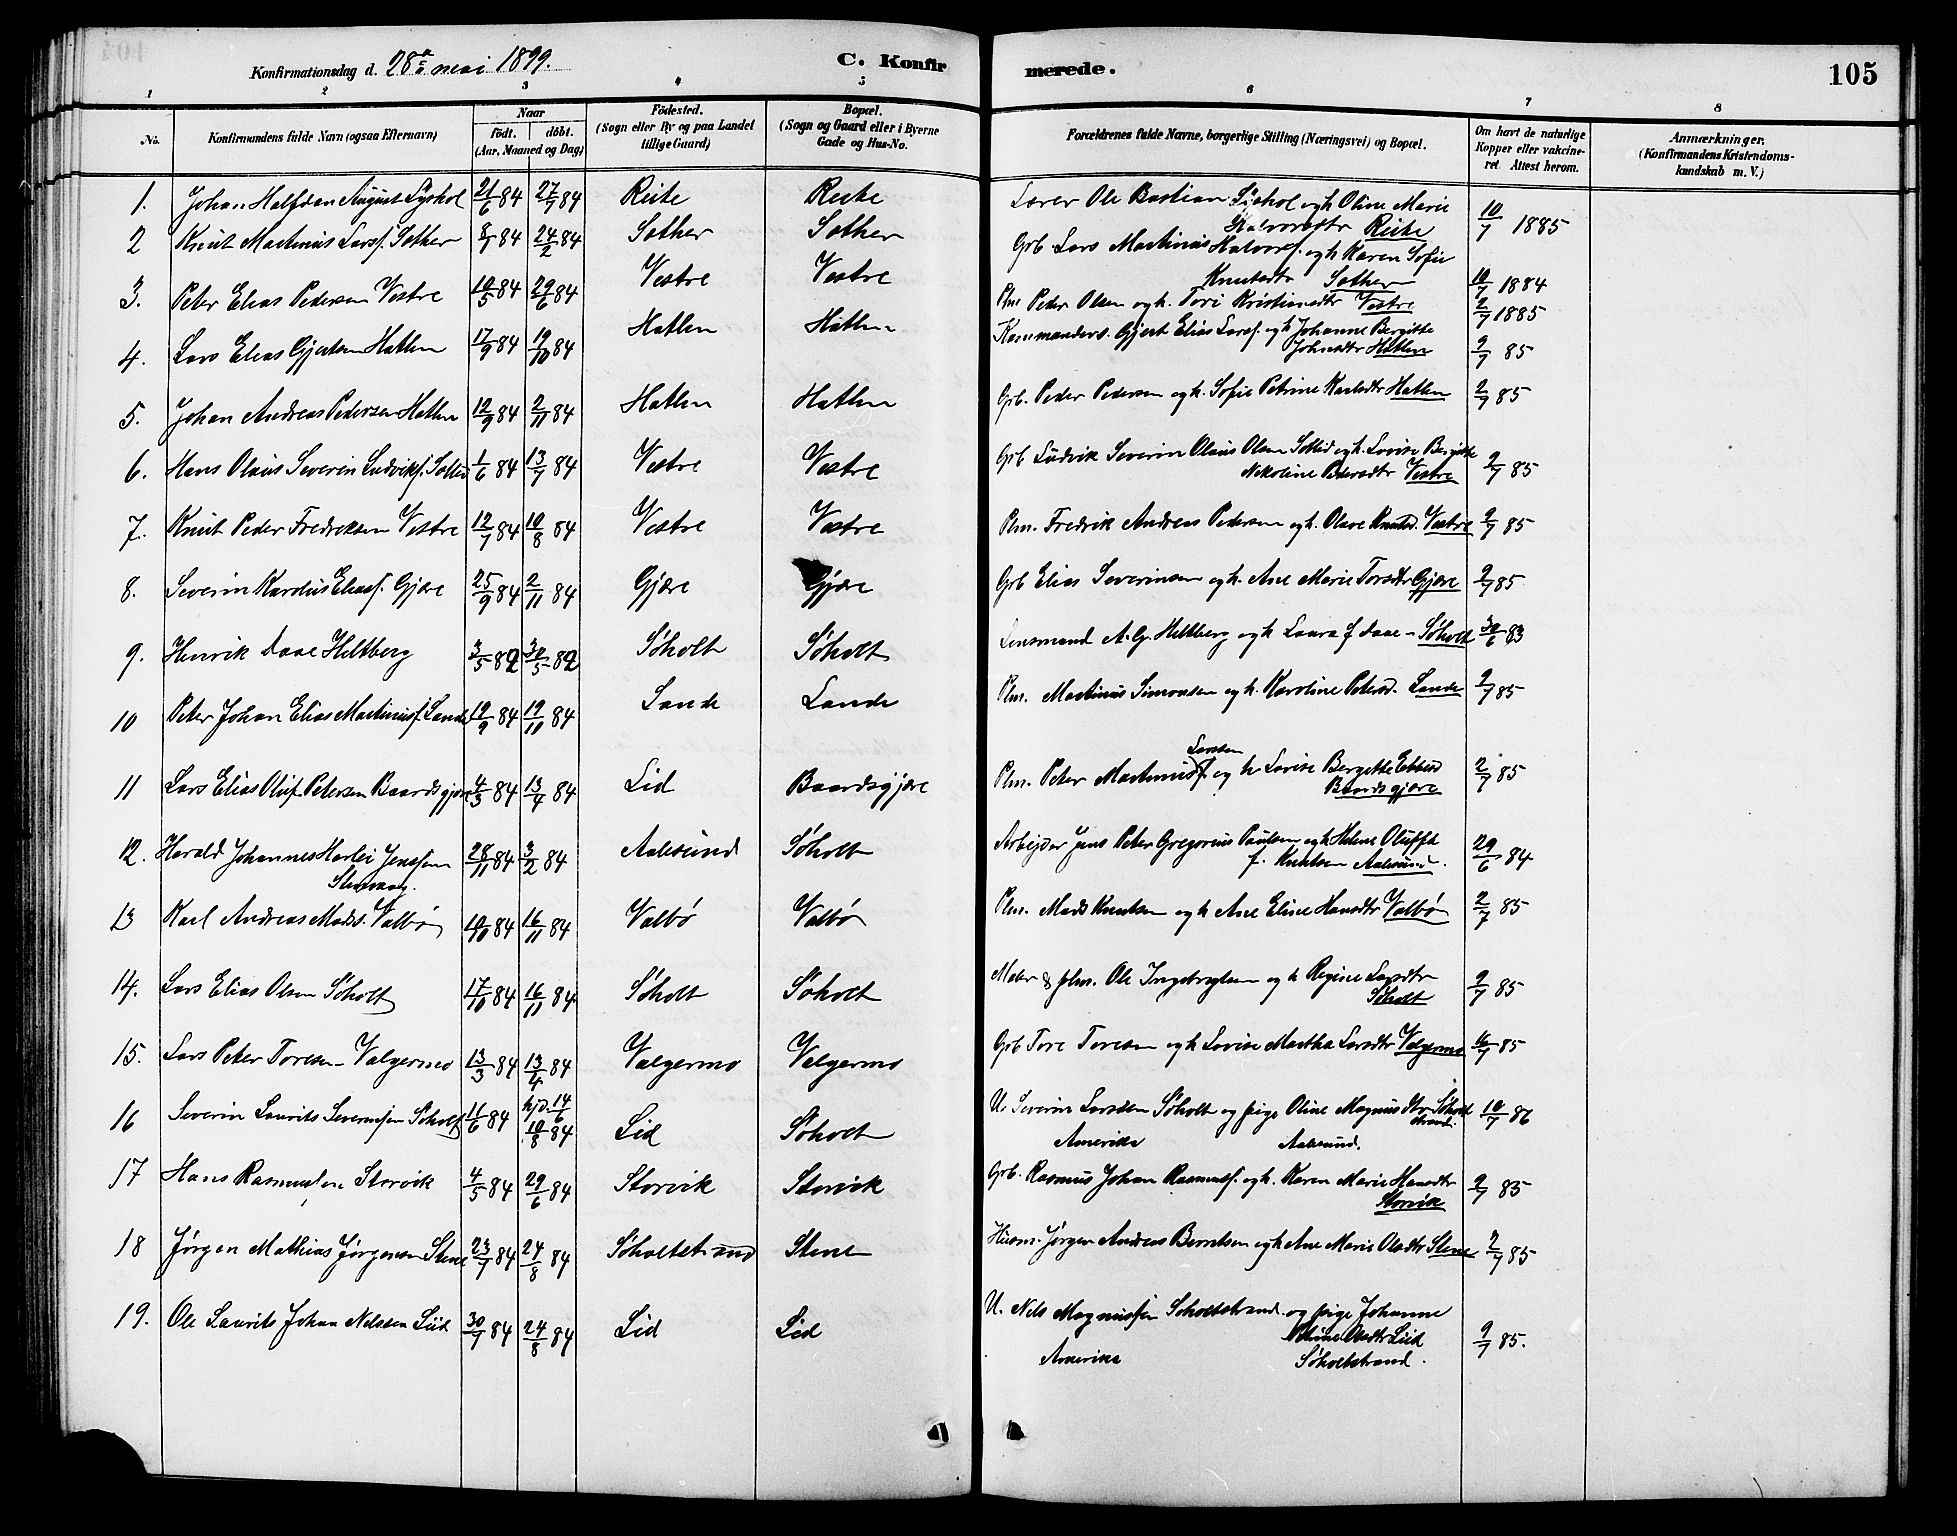 Konfirmationsdag d. 28de mai 1899.
C. Konfirmerede.
105
1 2 3 4 5 6 7 8
No.
Konfirmandens fulde Navn (ogsaa Efternavn)
Naar
födt. döbt.
(Aar, Maaned og Dag)
Födested.
(Sogn eller By og paa Landet
tillige Gaard)
Bopæl.
(Sogn og Gaard eller i Byerne
Gade og Hus-No.
Forældrenes fulde Navne, borgerlige Stilling (Næringsvei) og Bopæl.
Om havt de naturlige
Kopper eller vakcine-
ret. Attest herom.
Anmærkninger.
(Konfirmandens Kristendoms-
kundskab m. V.)
1. Johan Halfdan August Lyshol 21/6 84 27/7 84 Reite Reite Lærer Ole Bastian Lyshol og h Oline Marie
Halvorsdtr Reite 10/7 1885
2 Knut Martinus Larsf. Sother 8/1 84 24/2 84 Sother Sother Grb Lars Martinus Halvorsf. og h Karen Sofie
Knutsdtr Sother 10/7 1884
3. Peter Elias Pedersen Vestre 10/5 84 29/6 84 Vestre Vestre Plm Peter Olsen og h. Tori Kristiansdtr Vestre 2/7 1885
4. Lars Elias Gjertsen Hatlen 17/9 84 19/10 84 Hatlen Hatlen Kommanders. Gjert Elias Larsf. og h Johanne Bergitte
Johnsdtr Hatlen 2/7 85
5. Johan Andreas Pedersen Hatlen 12/9 84 2/11 84 Hatlen Hatlen Grb. Peder Pedersen og h. Sofie Petrine Karlsdtr Hatlen 2/7 85
6. Hans Olaus Severin Ludvikf. 1/6 84 13/7 84 Vestre Vestre Grb Ludvik Severin Olaus Olsen og h. Lovise Bergitte
Nikoline Pedersdtr Vestre 2/7 85
7. Knut Peder Fredriksen Vestre 12/7 84 10/8 84 Vestre Vestre Plm. Fredrik Andreas Pedersen og h. Olave Knutsd. Vestre 2/7 85
8. Severin Kardius Eliasf. Gjære 25/9 84 2/11 84 Gjære Gjære Grb Elias Severinsen og h. Ane Marie Torsdtr Gjære 2/7 85
9. Henrik Daae Heltberg 3/5 82 30/5 82 Søholt Søholt Lensmand A. G. Heltberg og h Laura f Daae - Søholt 30/6 83
10 Peter Johan Elias Martinusf. Sande 19/9 84 19/11 84 Sande Sande Plm. Martinus Simonsen og h. Karoline Petersd. Sande 2/7 85
11 Lars Elias Oluf Petersen Baardsgjære 4/3 84 13/4 84 Lid Baardsgjære Plm. Peter Martinus Larsen og h Lovise Bergette Ebbesd
Baardsgjære 2/7 85
12. Harald Johannes Jenssen
28/11 84 3/2 84 Aalesund Søholt Arbejder Jens Peter Gregorius Paulsen og h Helene Oluffa
f. Knutsen Aalesund. 29/6 84
13 Karl Andreas Mads. Valbø 10/10 84 16/11 84 Valbø Valbø Plm. Mads Knutsen og h Ane Eline Hansdtr Valbø 2/7 85
14. Lars Elias Olsen Søholt 17/10 84 16/11 84 Søholt Søholt Maler & plm. Ole Ingebrigtsen og h Regine Larsdtr
Søholt 2/7 85
15. Lars Peter Toresen Valgermo 13/3 84 13/4 84 Valgermo Valgermo Grb Tore Toresen og h Lovise Martha Larsdtr Valgermo 10/7 85
16 Severin Laurits Severinsen Søholt 11/6 84 hjd. 14/6 10/8 84 Lid Søholt U. Severin Larsen Søholt og pige Oline Magnusdtr Søholt
strand. 10/7 86
Amerika Aalesund.
17 Hans Rasmussen Storvik 4/5 84 29/6 84 Storvik Storvik Grb. Rasmus Johan Rasmusf. og h. Karen Marie Hansdtr
Storvik 2/7 85
18 Jørgen Mathias Jørgensen Stene 23/7 84 24/8 84 Søholtstrand Stene Husm. Jørgen Andreas Berntsen og h Ane Marie Olsdtr Stene 2/7 85
19. Ole Laurits Johan Nelssen Liid 30/7 84 24/8 84 Lid Lid U. Nels Magnussen Søholtstrand og pige Johanne
Olsdtr Liid 2/7 85.
Amerika Søholtstrand.